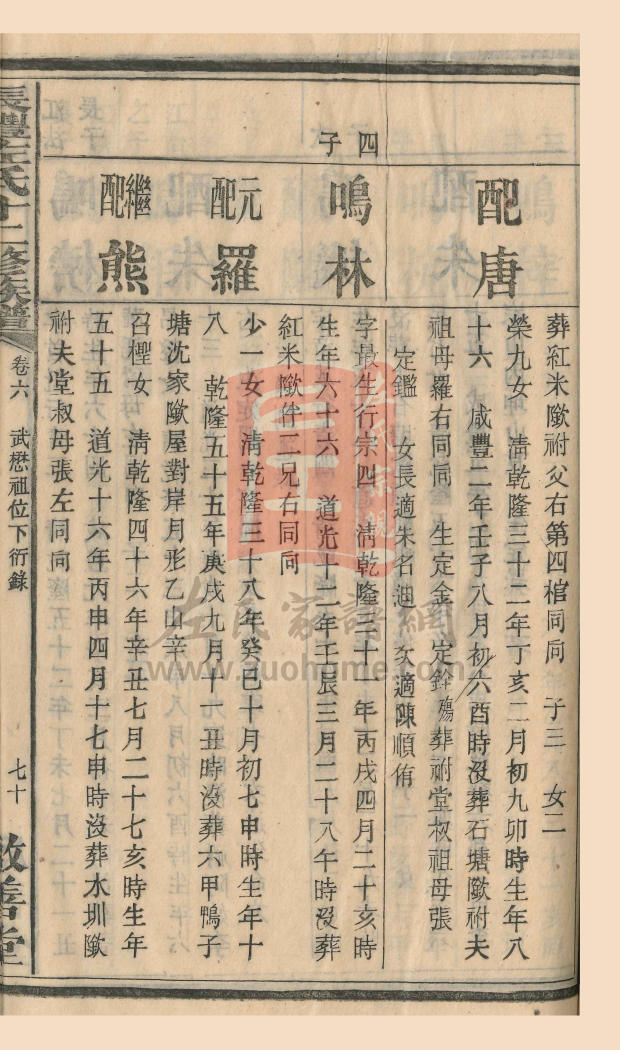 葬紅米㘰祔父右第四棺同向　子三　女二
配唐
榮九女　清乾隆三十二年丁亥二月初九卯時生年八
十六　咸豐二年壬子八月初六酉時沒葬石塘㘰祔夫
祖母羅右同向　生定金　定銓殤葬祔堂叔祖母張
定鑑　女長適朱名迪　次適陳順侑
四子
鳴林
字最生行宗四　清乾隆三十　年丙戌四月二十亥時
生年六十六　道光十二年壬辰三月二十八午時沒葬
紅米㘰伴三兄右同向
元配羅
少一女　清乾隆三十八年癸巳十月初七申時生年十
八　乾隆五十五年庚戌九月十一丑時沒葬六甲鴨子
塘沈家㘰屋對岸月形乙山辛
繼配熊
召檉女　清乾隆四十六年辛丑七月二十七亥時生年
五十五　道光十六年丙申四月十七申時沒葬水圳㘰
祔夫堂叔母張左同向
左氏十二修族譜
卷六　武懋祖位下衍錄
七十
敦善堂
左氏家譜網
www.zuohome.com